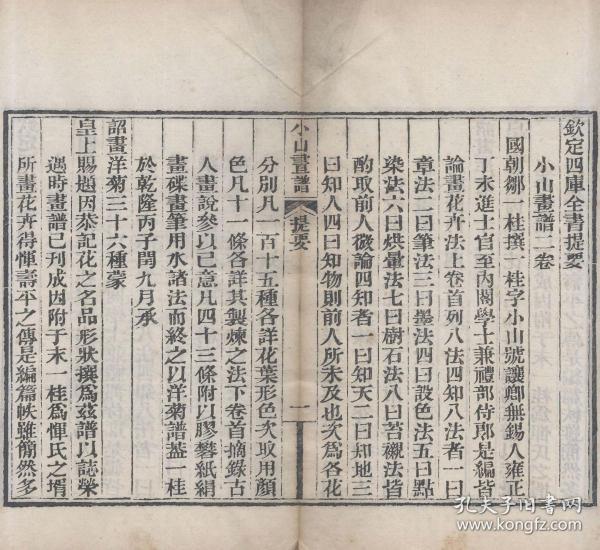 欽定四庫全書提要
小山畫譜二卷
國朝鄒一桂撰一桂字小山號讓鄉無錫人雍正
丁未進士官至內閣學士兼禮部侍郎是編皆
論畫花卉法上卷首列八法四知八法者一曰
章法二曰筆法三曰墨法四曰設色法五曰點
染法六曰烘暈法七曰樹石法八曰苔襯法皆
酌取前人微論四知者一曰知天二曰知地三
曰知人四曰知物則前人所未及也次爲各花
小山畫譜 提要 一
分別凡一百十五種各詳花葉形色次取用顏
色凡十一條各詳其製煉之法下卷首摘錄古
人畫說參以己意凡四十三條附以膠礬紙絹
畫碟畫筆用水諸法而終之以洋菊譜葢一桂
於乾隆丙子閏九月承
詔畫洋菊三十六種蒙
皇上賜題因恭記花之名品形狀撰爲茲譜以誌榮
遇時畫譜已刋成因附于末一桂爲惲氏之壻
所畫花卉得惲壽平之傳是編篇帙雖簡然多
孔夫子旧书网
www.kongfz.com